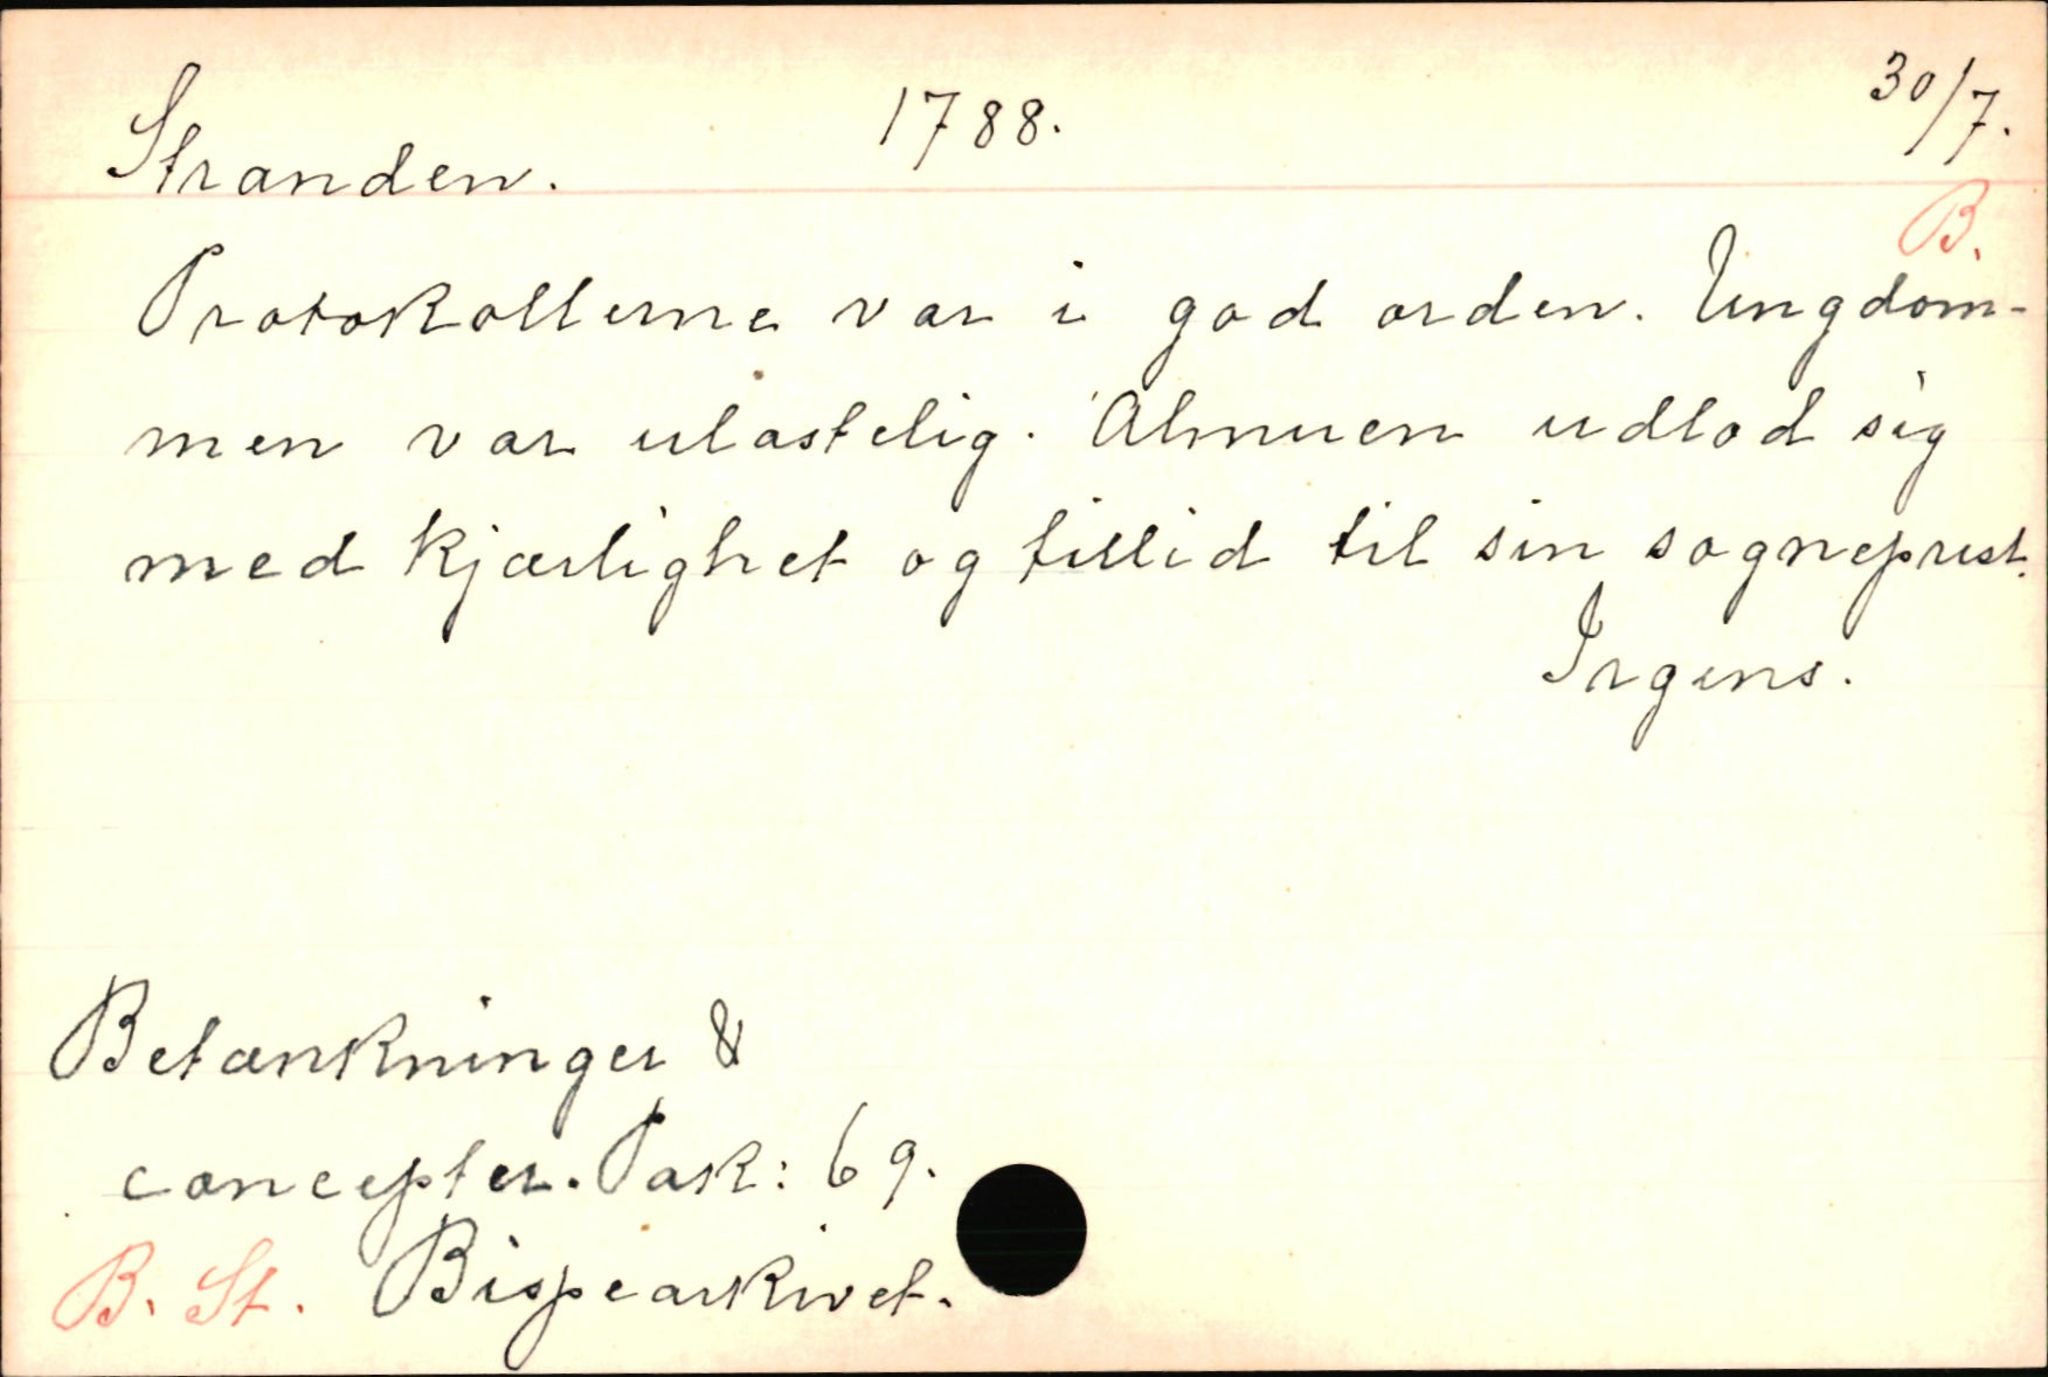 Stranden. 1788. 30/7.
B.
Protokollerne var i god orden. Ungdom-
men var ulastelig. Almuen udlod sig
med kjærlighet og tillid til sin sogneprest.
Irgens.
Betænkninger &
concepter. Pak: 69.
B. St. Bispearkivet.